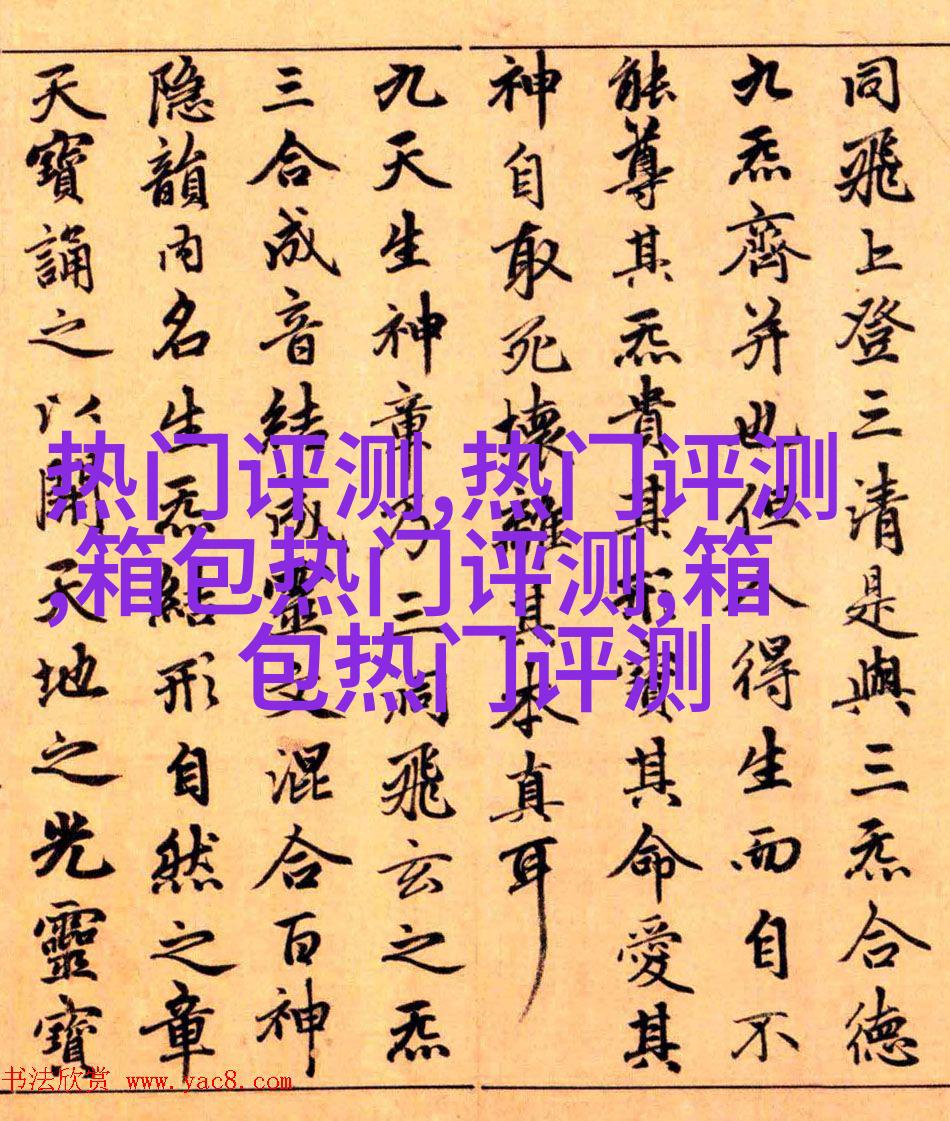 同飛上登三清是與三炁合德
九炁齊并也但人得生而自不
能尊其炁貴其形寶其命愛其
神自取死壞離其本真耳
九天生神章乃三洞飛玄之炁
三合成音結成靈文混合百神
隐韻内名生炁結形自然之章
天寶誦之以開天地之光靈寶
热门评测,热门评测
,箱包热门评测,箱
包热门评测
书法欣赏 www.yac8.com